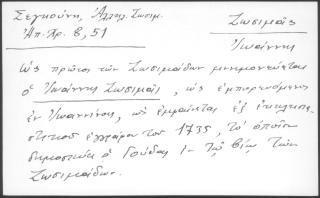 Σεγκούνη, Ἀλληλ. Ζωσιμ.
Ἠπ. Χρ. 8, 51
Ζωσιμᾶς
Ἰωάννης
Ὡς πρῶτος τῶν Ζωσιμάδων μνημονεύεται
ὁ Ἰωάννης Ζωσιμᾶς, ὡς ἐμπορευόμενος
ἐν Ἰωαννίνοις, ὡς ἐμφαίνεται ἐξ ἐκκλησι-
αστικοῦ ἐγγράφου τοῦ 1735, τὸ ὁποῖον
δημοσιεύει ὁ Γούδας ἐν τῷ βίῳ τῶν
Ζωσιμάδων.